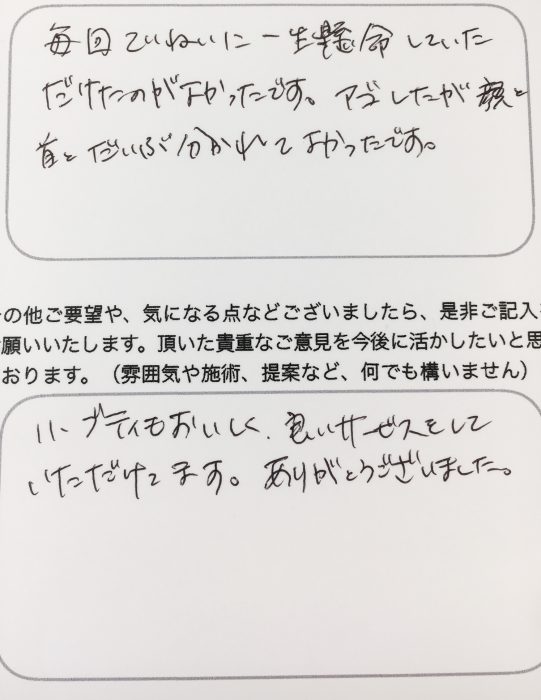 毎回ていねいに一生懸命していた
だけたのがよかったです。アゴしたが頬と
首とだいぶ分かれてよかったです。
の他ご要望や、気になる点などございましたら、是非ご記入
願いいたします。頂いた貴重なご意見を今後に活かしたいと思
おります。（雰囲気や施術、提案など、何でも構いません）
ハーブティもおいしく、良いサービスをして
いただけてます。ありがとうございました。